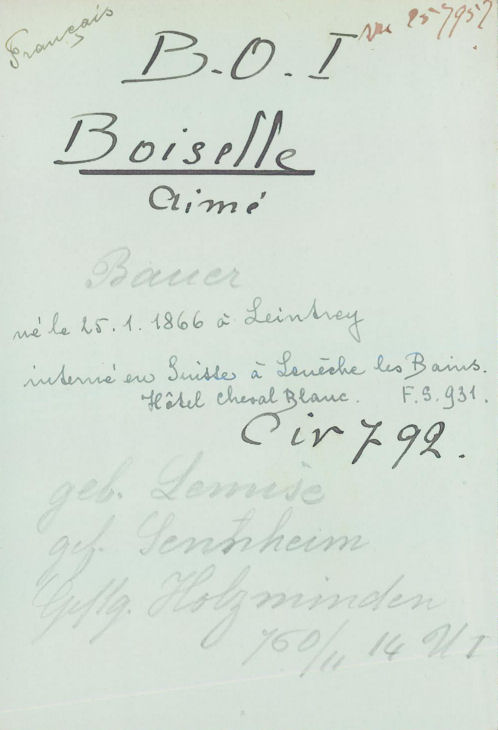 Français
vu 257957
B.O.I
Boiselle
Aimé
Bauer
né le 25.1.1866 à Leintrey
interné en Suisse à Louèche les Bains.
Hôtel Cheval Blanc. F.S. 931.
Cir 792.
geb. Lemuise
gef. Sennheim
Gefg. Holzminden
760/11 14 U I